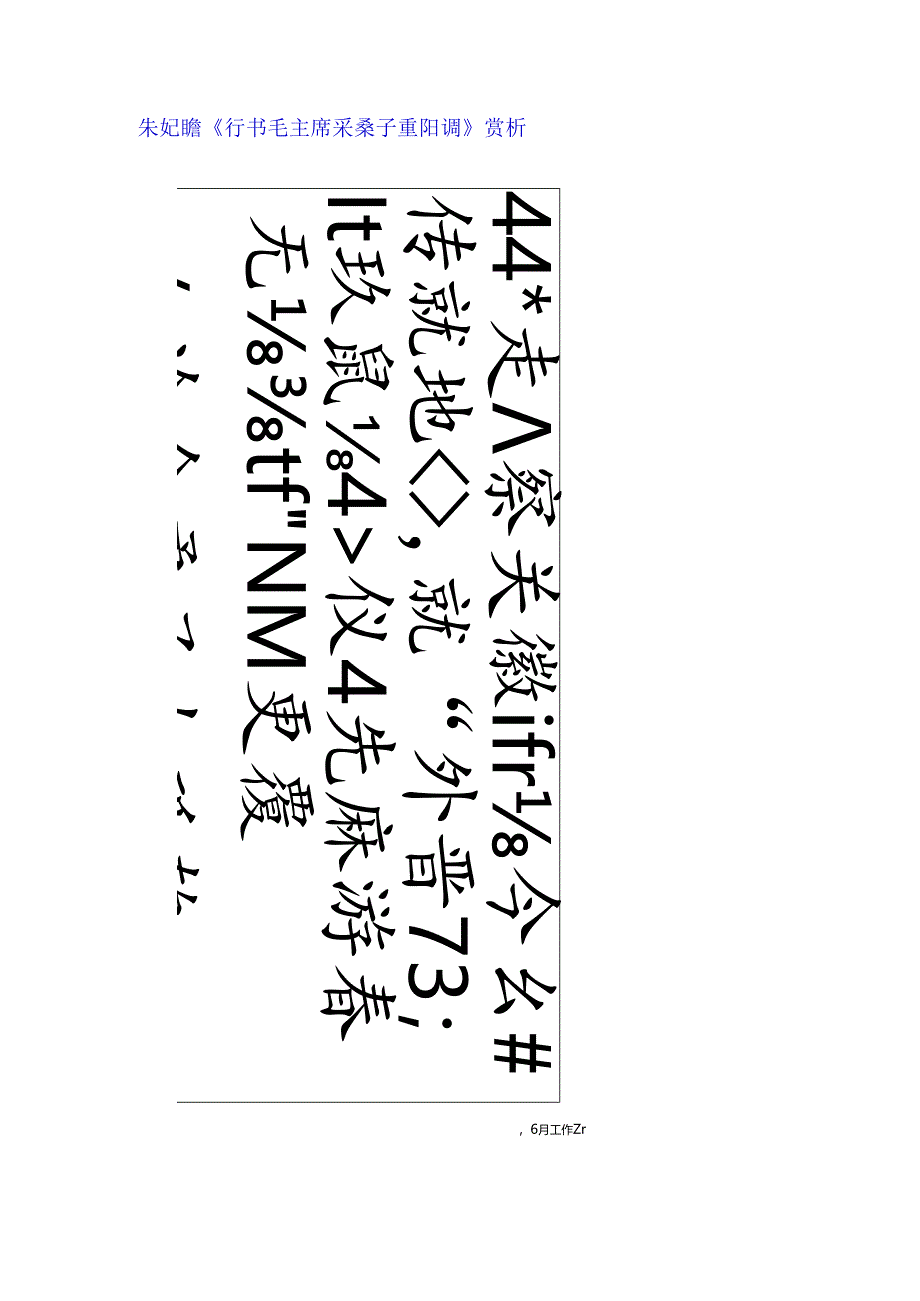 朱妃瞻《行书毛主席采桑子重阳调》赏析
44*走Λ察关徽ifr⅛今么#
传就地<>,就 “外晋73;
It玖鼠⅛4>仪4先麻游春
无⅛⅜tf"NM更覆
，6月工作Zr